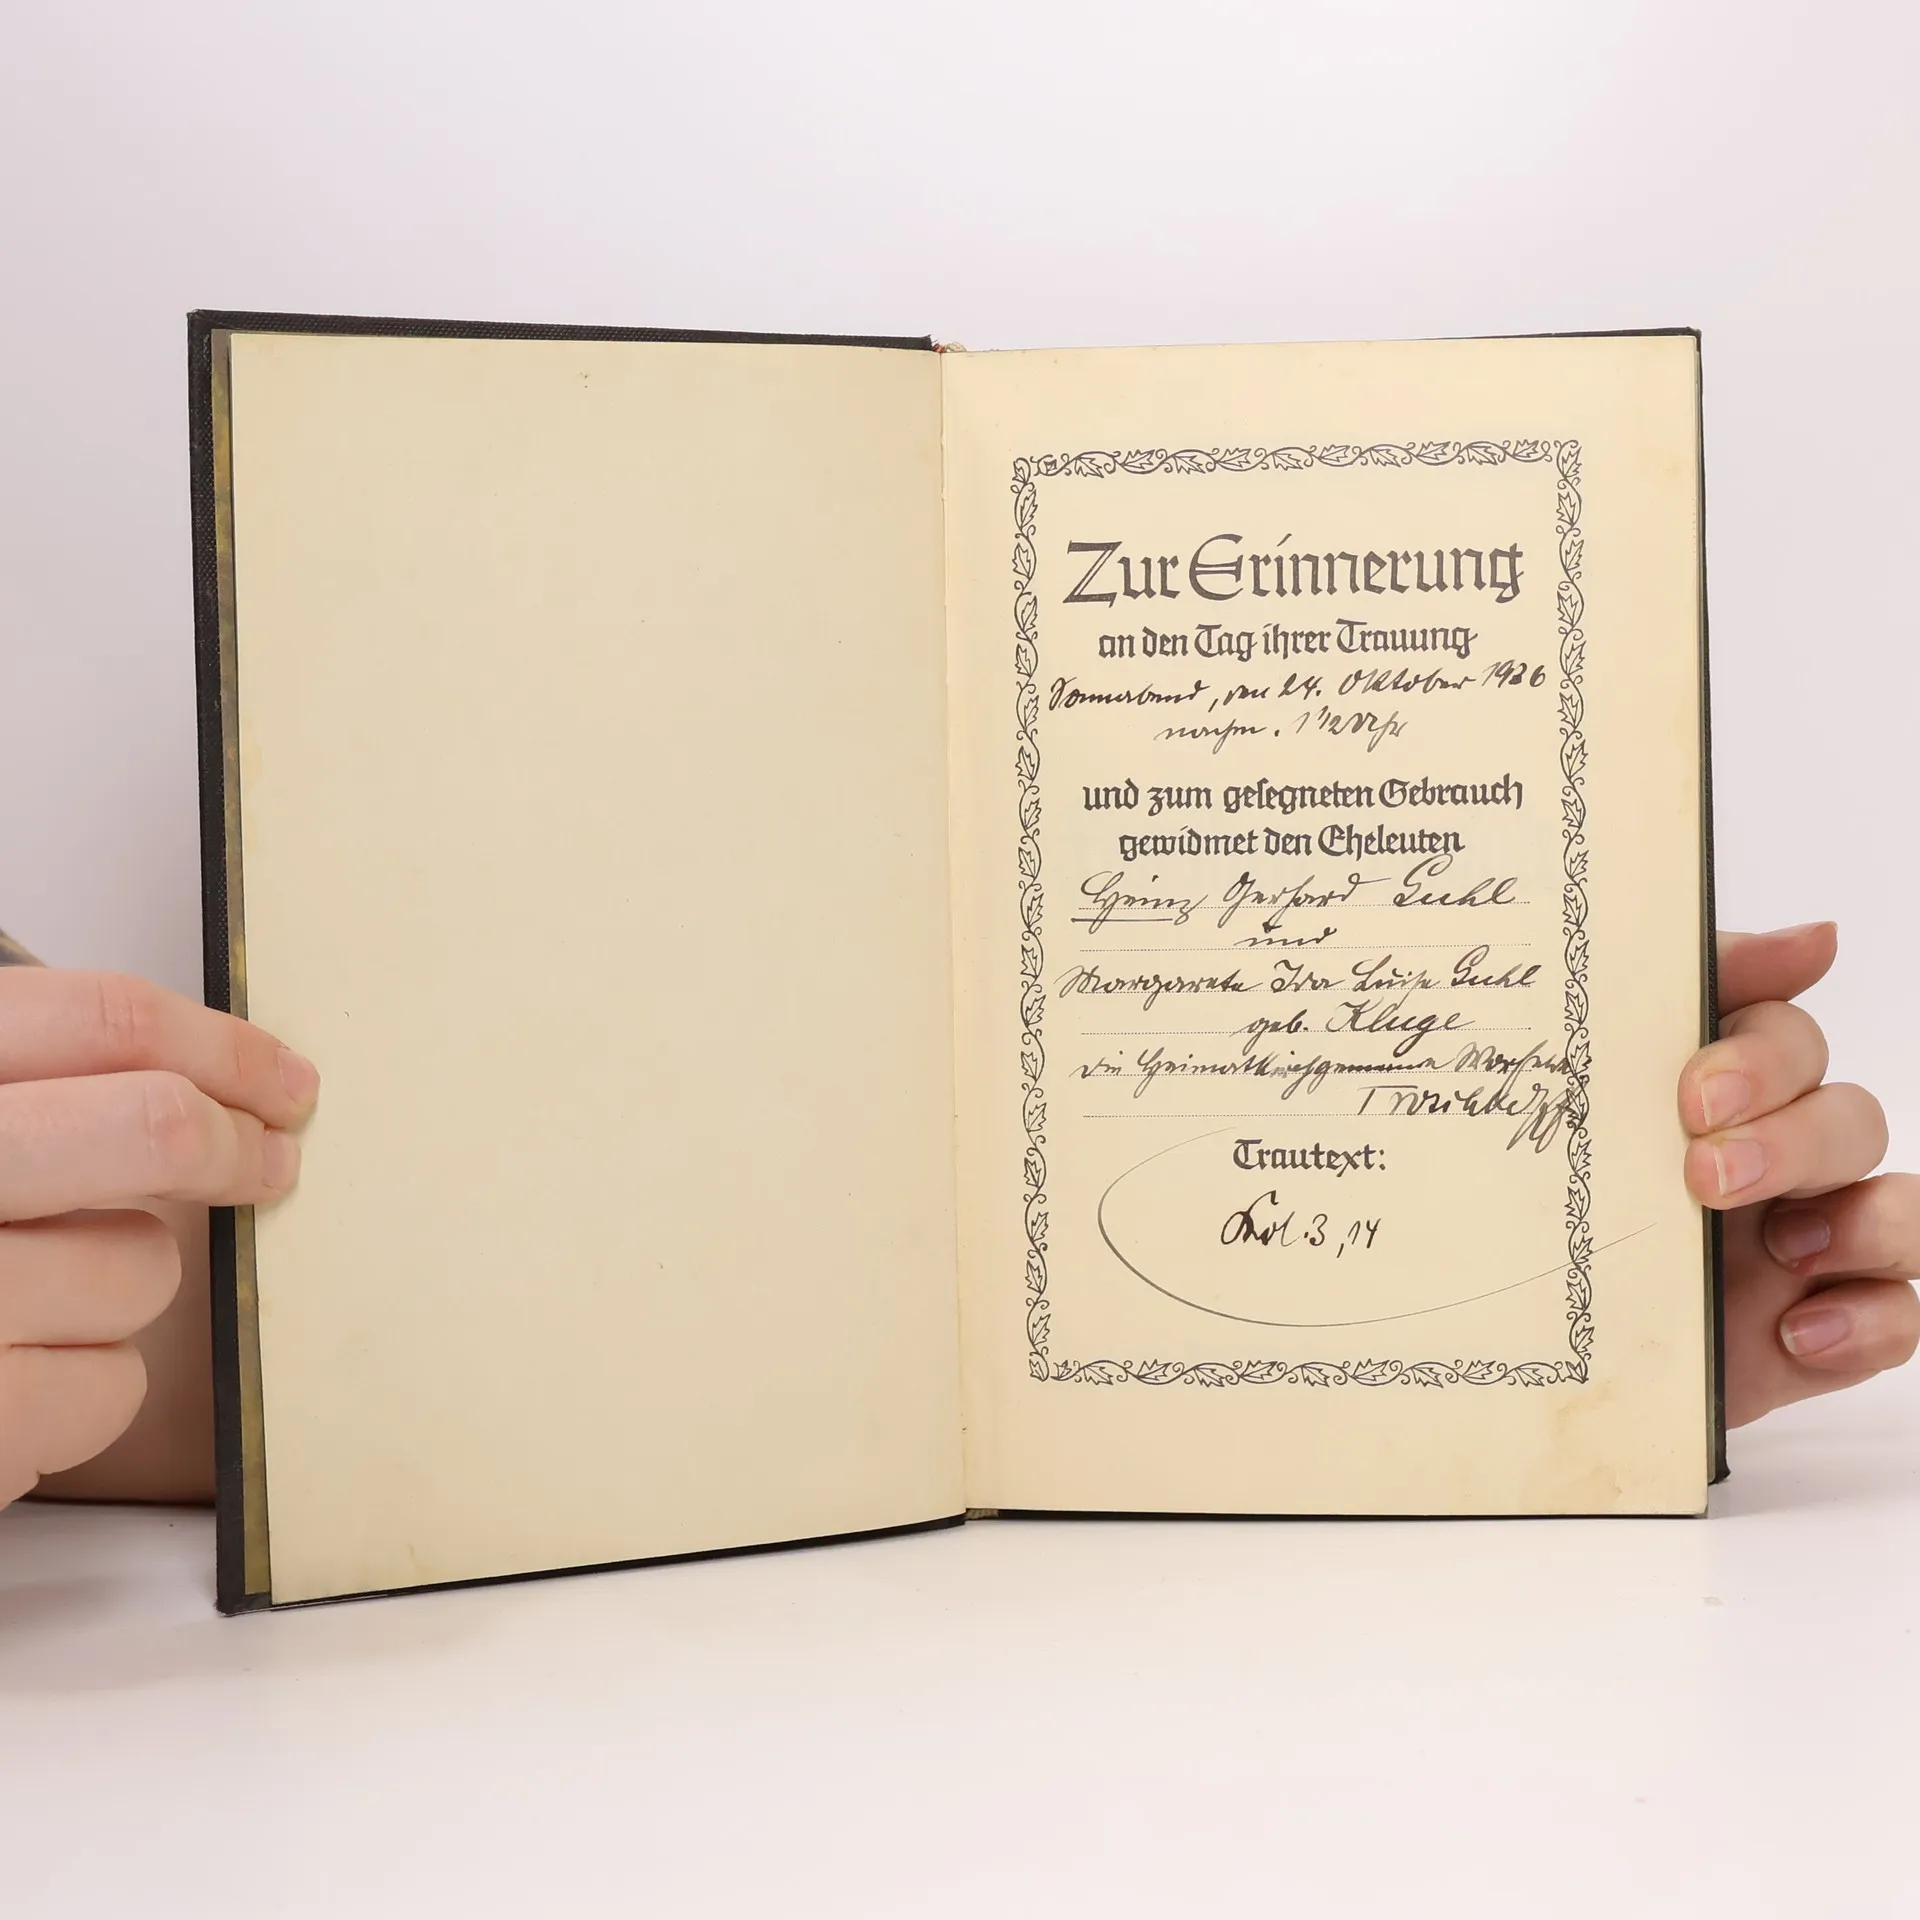 Zur Erinnerung
an den Tag ihrer Trauung
Sonnabend, den 24. Oktober 1936
nachm. 1 1/2 Uhr
und zum gesegneten Gebrauch
gewidmet den Eheleuten
Heinz Gerhard Guhl
und
Margarete Ida Luise Guhl
geb. Kluge
die Heimatkirchgemeinde
Trautext:
Kol. 3, 14